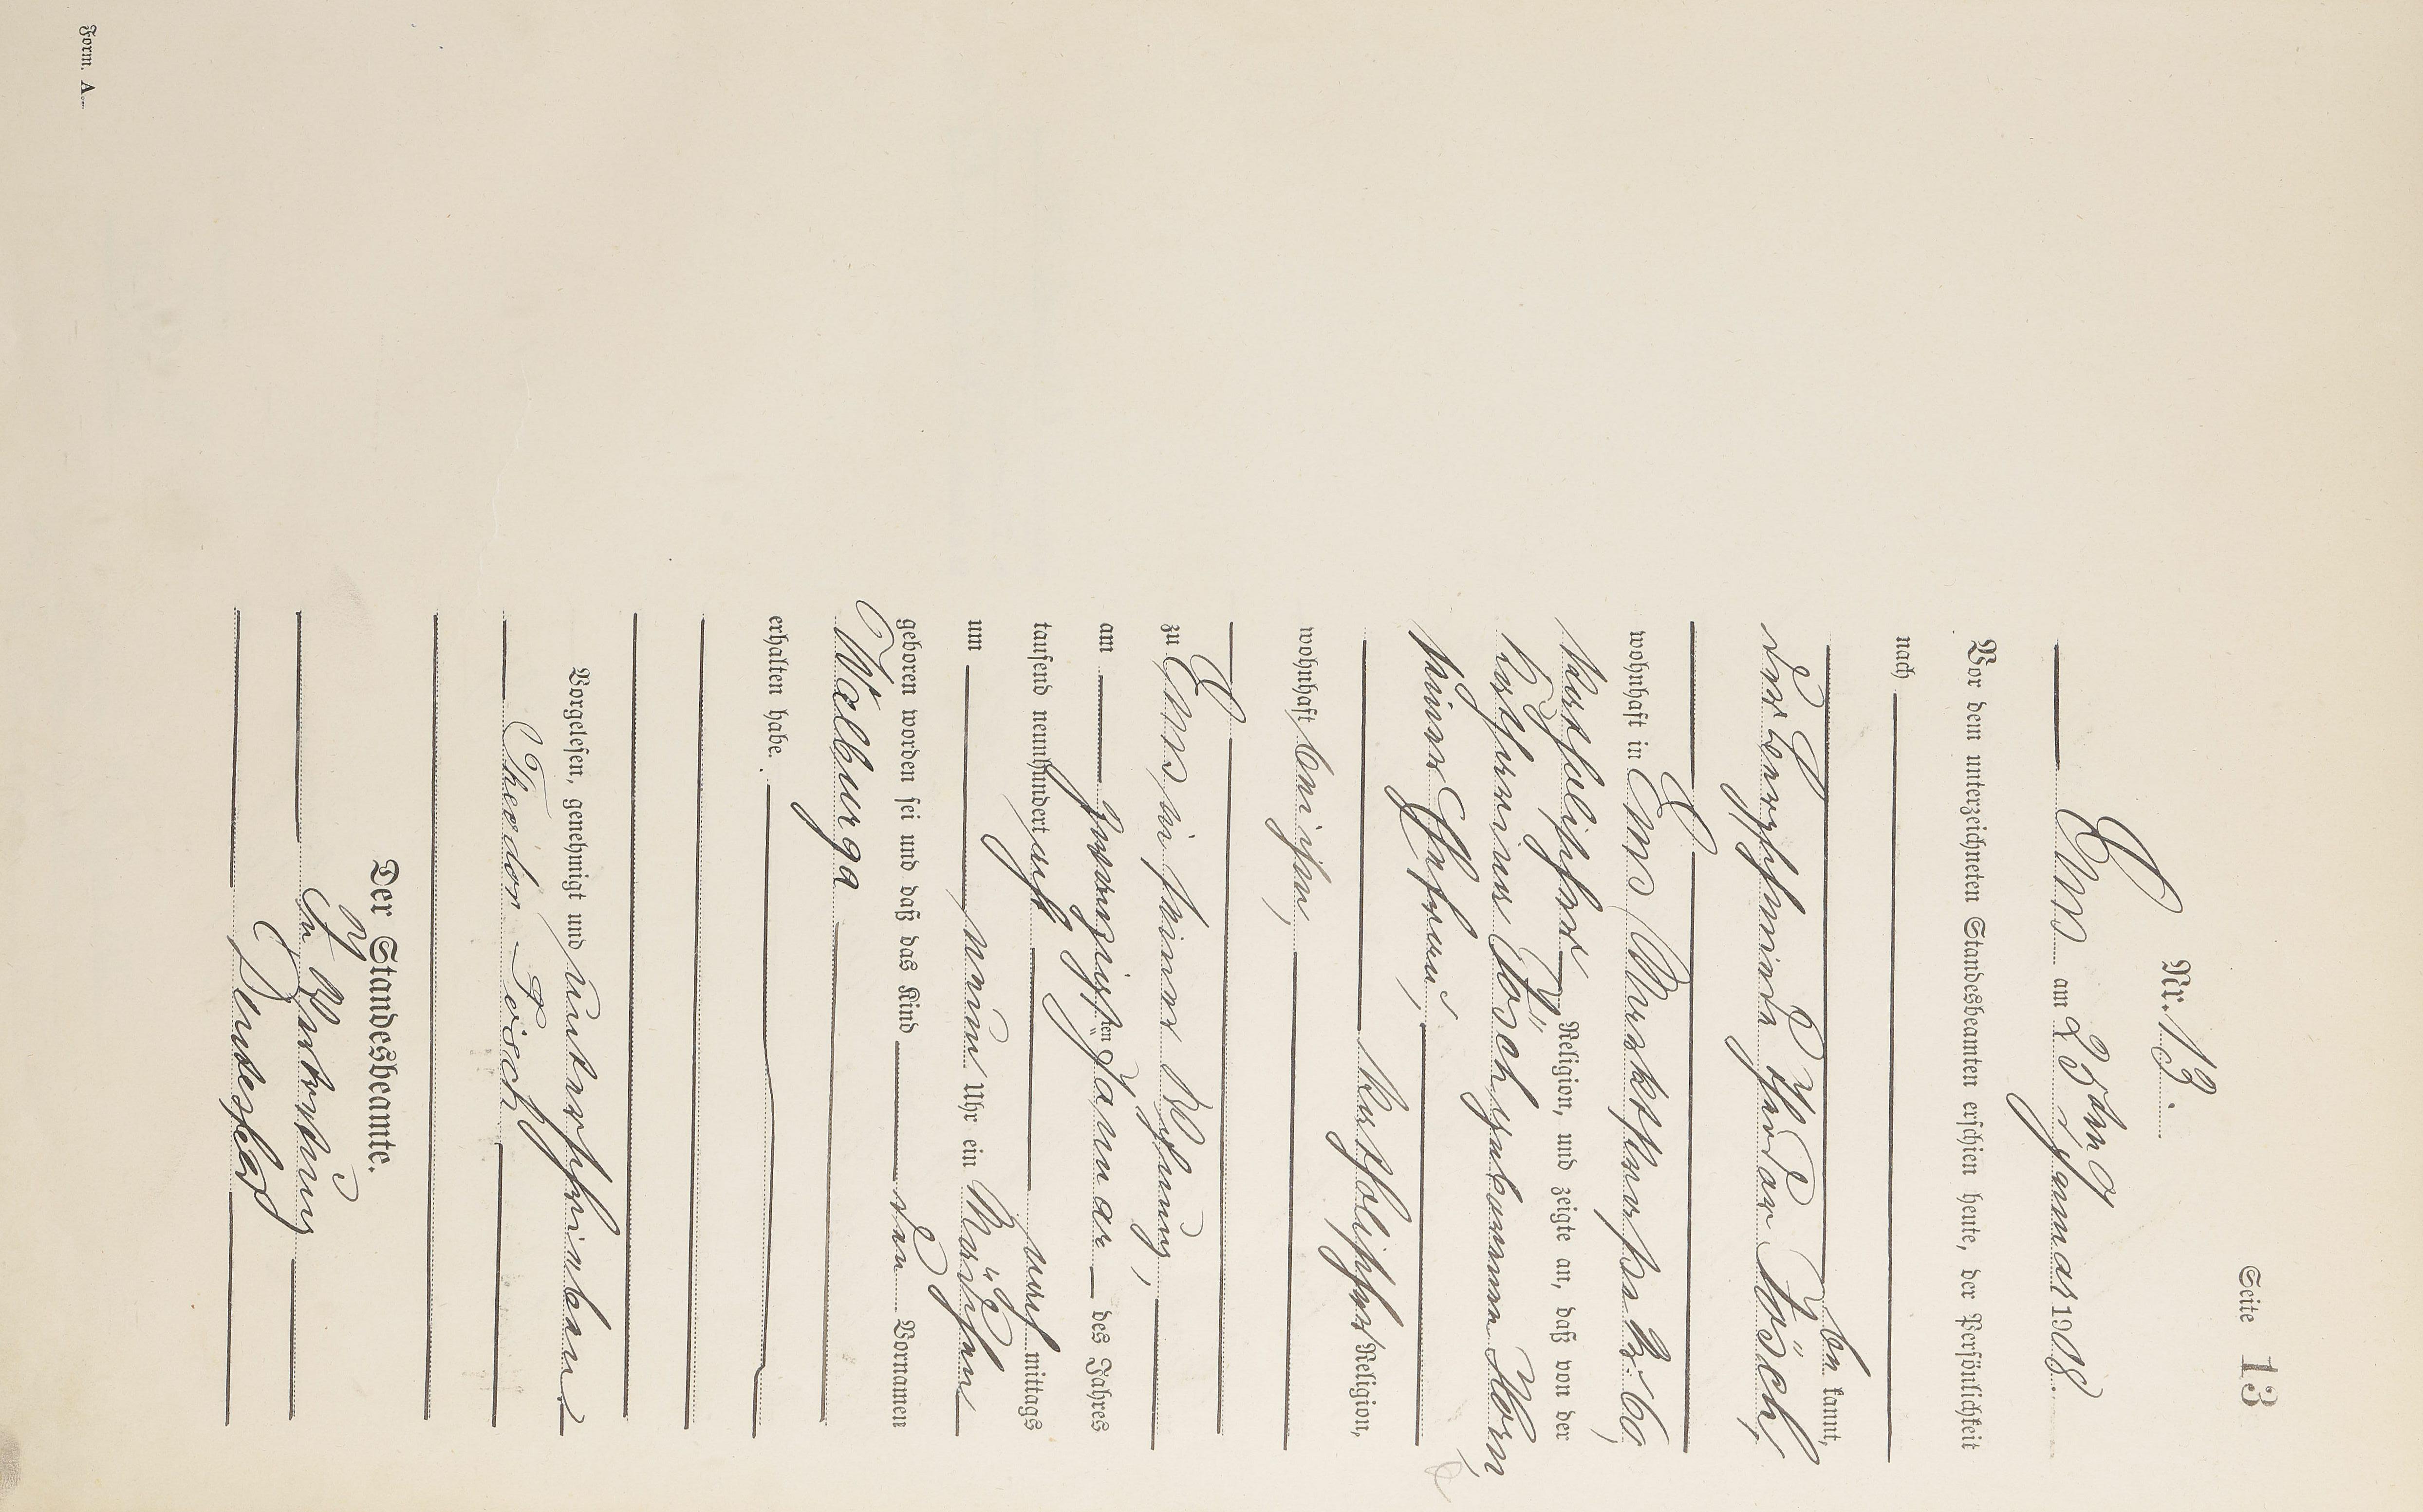 Seite 13
Nr. 13.
Ems am 25ten Januar 1908.
Vor dem unterzeichneten Standesbeamten erschien heute, der Persönlichkeit
nach
be kannt,
der Theodor Pösch,
wohnhaft in Ems, Marktstraße Nr. 60,
katholischer Religion, und zeigte an, daß von der
Katharina Pösch geborenen Korn
seiner Ehefrau,
katholischer Religion,
wohnhaft bei ihm,
zu Ems in seiner Wohnung,
am zwanzigsten Januar des Jahres
tausend neunhundert acht nach mittags
um neun Uhr ein Mädchen
geboren worden sei und daß das Kind den Vornamen
Walburga
erhalten habe.
Vorgelesen, genehmigt und unterschrieben
Theodor
Der Standesbeamte.
In Vertretung
Form. A.